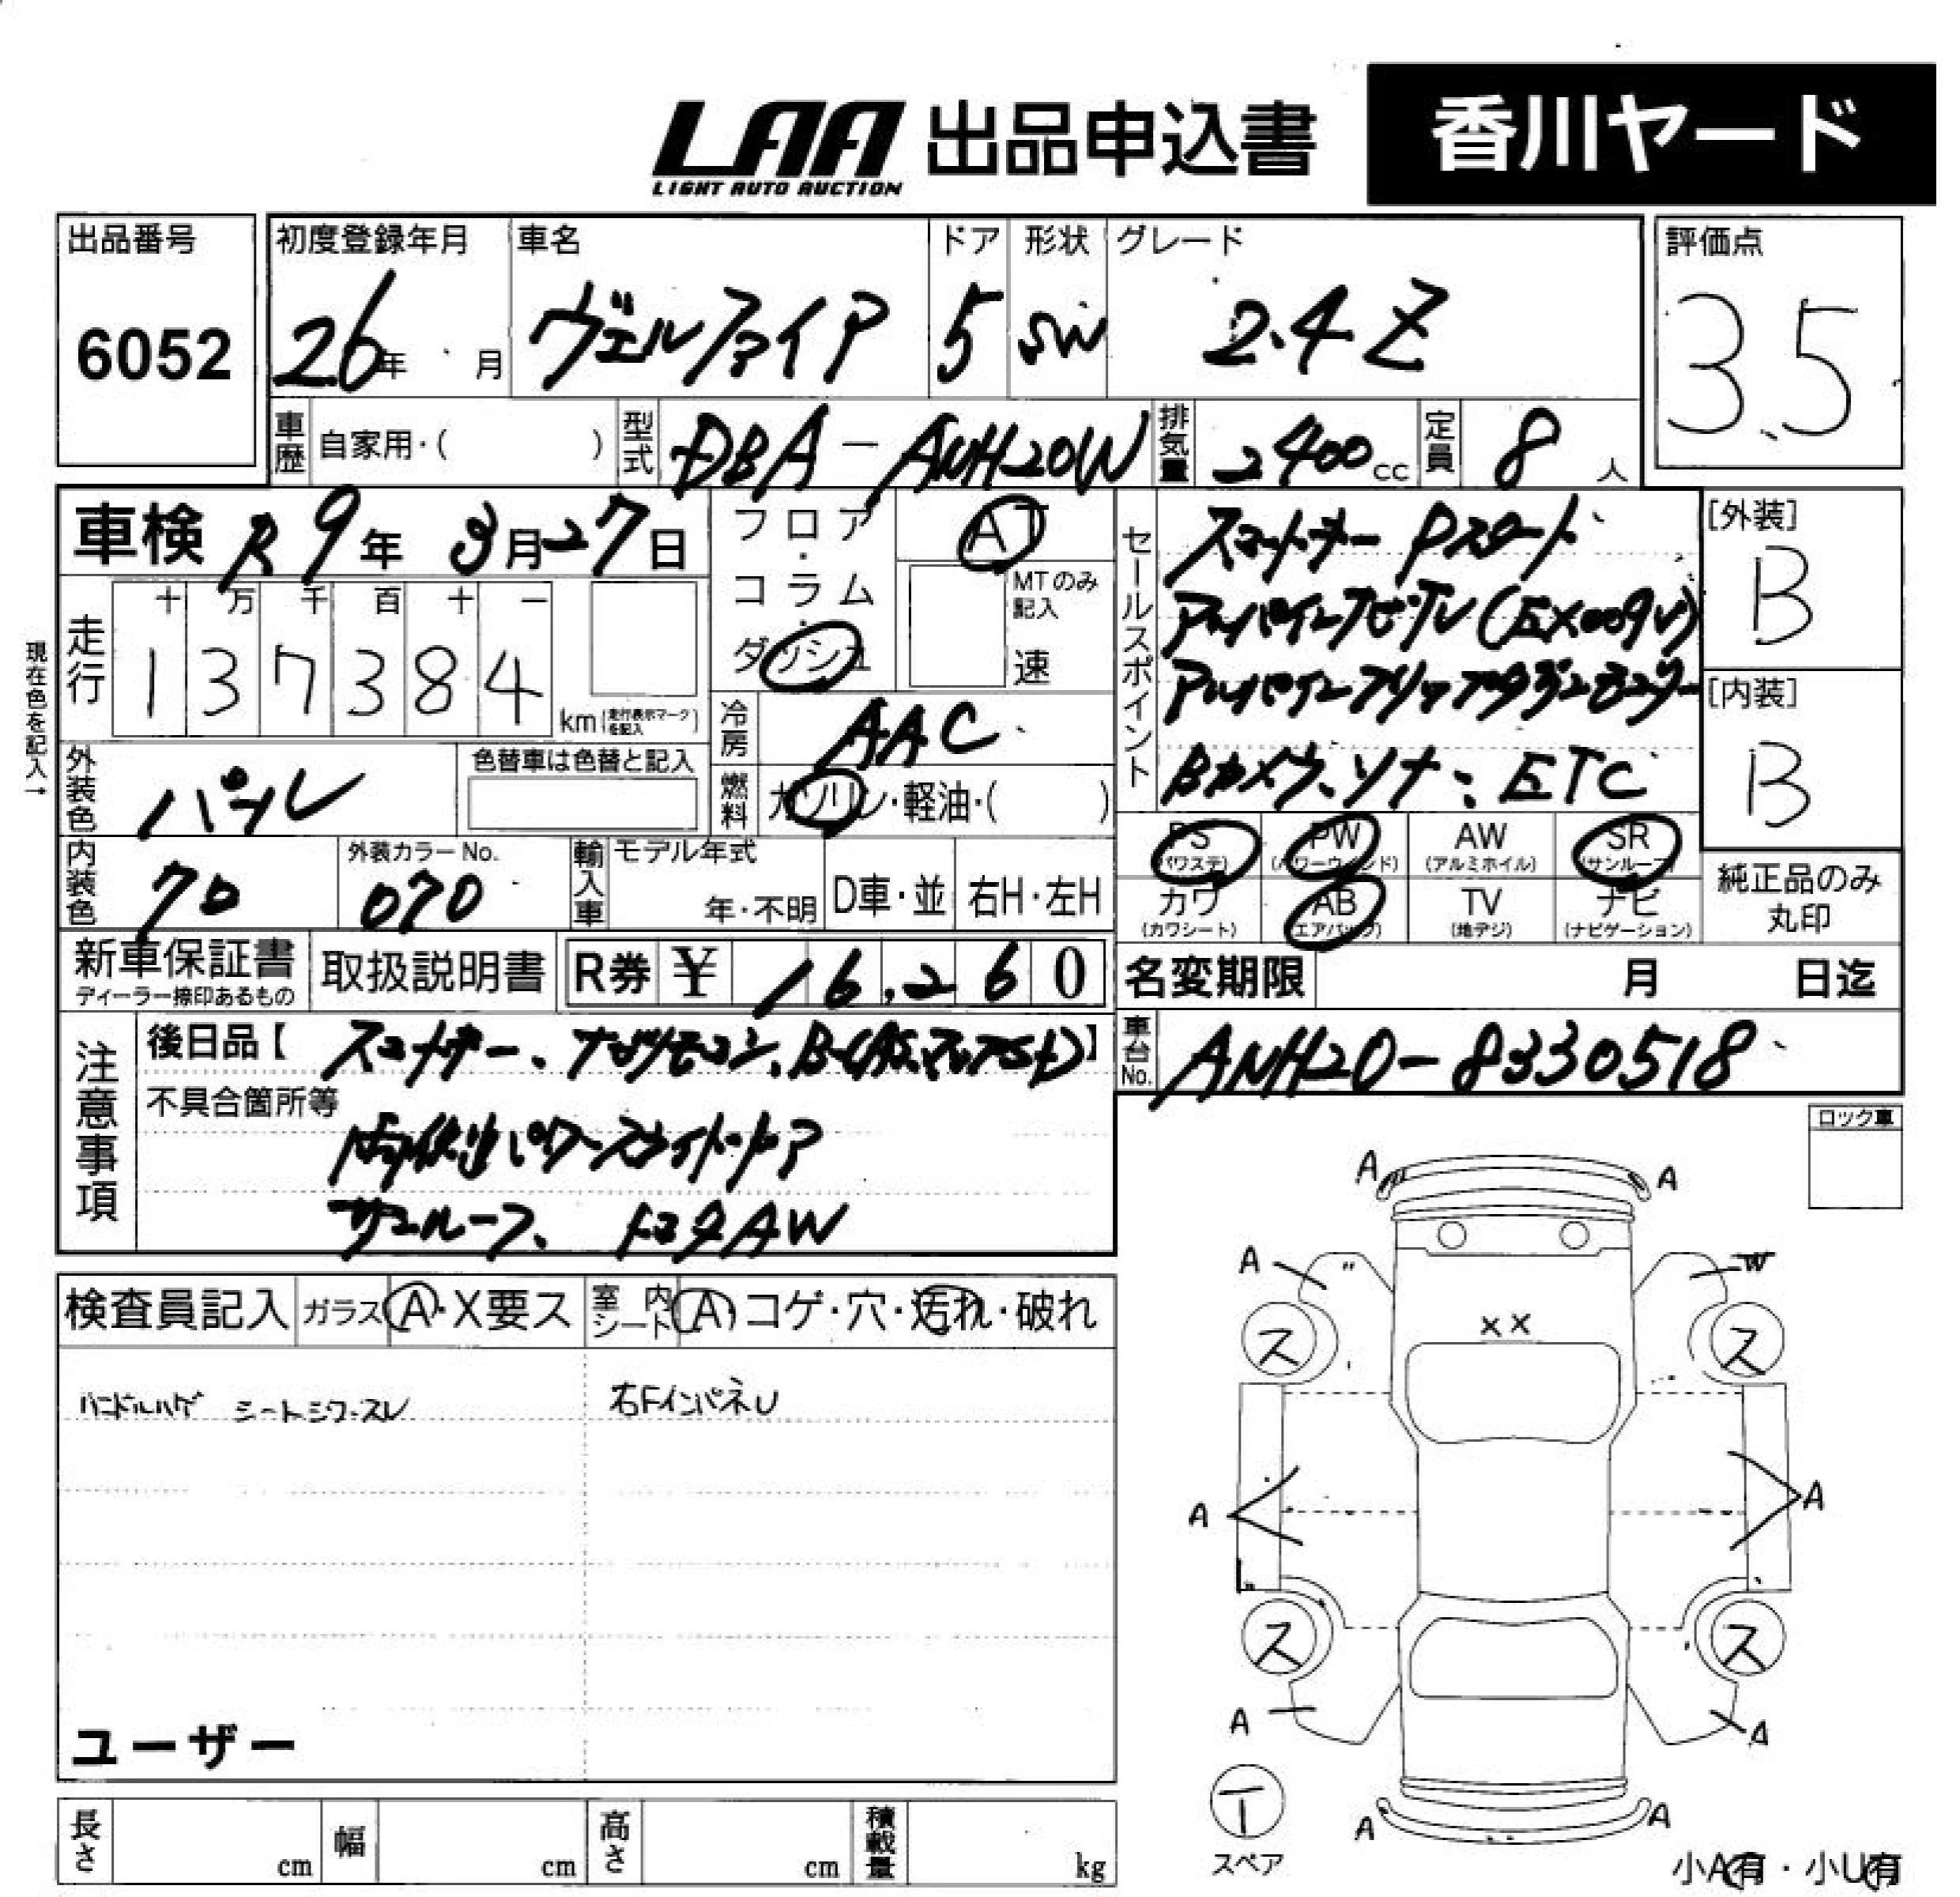 LAA 出品申込書 香川ヤード
LIGHT AUTO AUCTION
出品番号 初度登録年月 車名 ドア 形状 グレード 評価点
6052 26年 月 ヴェルファイア 5 SW 2.4 Z 3.5
車歴 自家用・( ) 型式 DBA-ANH20W 排気量 2400cc 定員 8人
車検 R9年 3月27日 フロア・コラム・ダッシュ AT
MTのみ記入 速
セールスポイント スマートキー Pスタート
アルパインナビ・TV(EX009V)
アルパインフリップダウンモニター
Bカメラ、ソナー、ETC
[外装] B
[内装] B
現在色を記入→
走行 十 万 千 百 十 一
1 3 7 3 8 4 km(走行表示マークを記入)
冷房 AAC
外装色 パール 色替車は色替と記入
燃料 ガソリン・軽油・( )
内装色 クロ 外装カラーNo. 070 輸入車 モデル年式 年・不明 D車・並 右H・左H
PS (パワステ) PW (パワーウインド) AW (アルミホイル) SR (サンルーフ)
カワ (カワシート) AB (エアバッグ) TV (地デジ) ナビ (ナビゲーション)
純正品のみ丸印
新車保証書 ディーラー捺印あるもの 取扱説明書 R券 ¥ 16,260
名変期限 月 日迄
注意事項 後日品【スマートキー、ナビリモコン、B-CAS、】
車台No. ANH20-8330518
不具合箇所等
両側パワースライドドア
サンルーフ、トヨタAW
ロック車
検査員記入 ガラス A・X要ス 室内シート A コゲ・穴・汚れ・破れ
ハンドルハゲ シートシワ・スレ 右FインパネU
A A
A 〃 W
XX
ス ス
A A
ス ス
A A
T
スペア
A A
ユーザー
長さ cm 幅 cm 高さ cm 積載量 kg
小A有・小U有